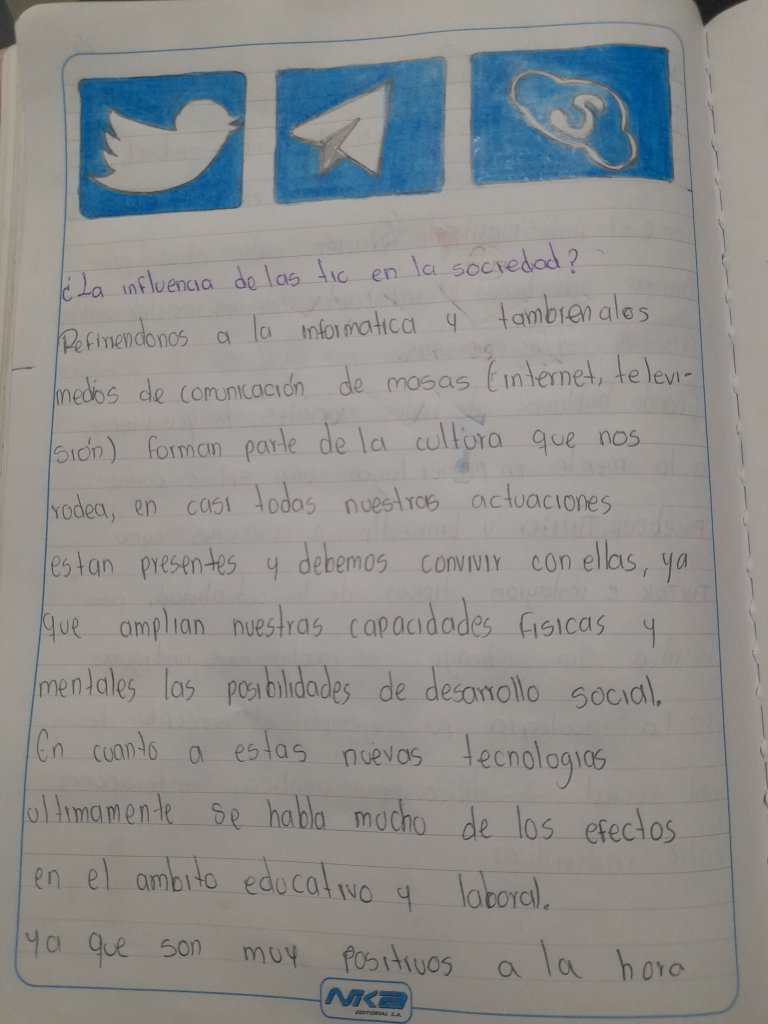 S
¿La influencia de las tic en la sociedad?
Refiriendonos a la informatica y tambien a los
medios de comunicación de masas (internet, televi-
sión) forman parte de la cultura que nos
rodea, en casi todas nuestras actuaciones
estan presentes y debemos convivir con ellas, ya
que amplian nuestras capacidades fisicas y
mentales las posibilidades de desarrollo social.
En cuanto a estas nuevas tecnologias
ultimamente se habla mucho de los efectos
en el ambito educativo y laboral.
ya que son muy positivos a la hora
NKB
EDITORIAL S.A.